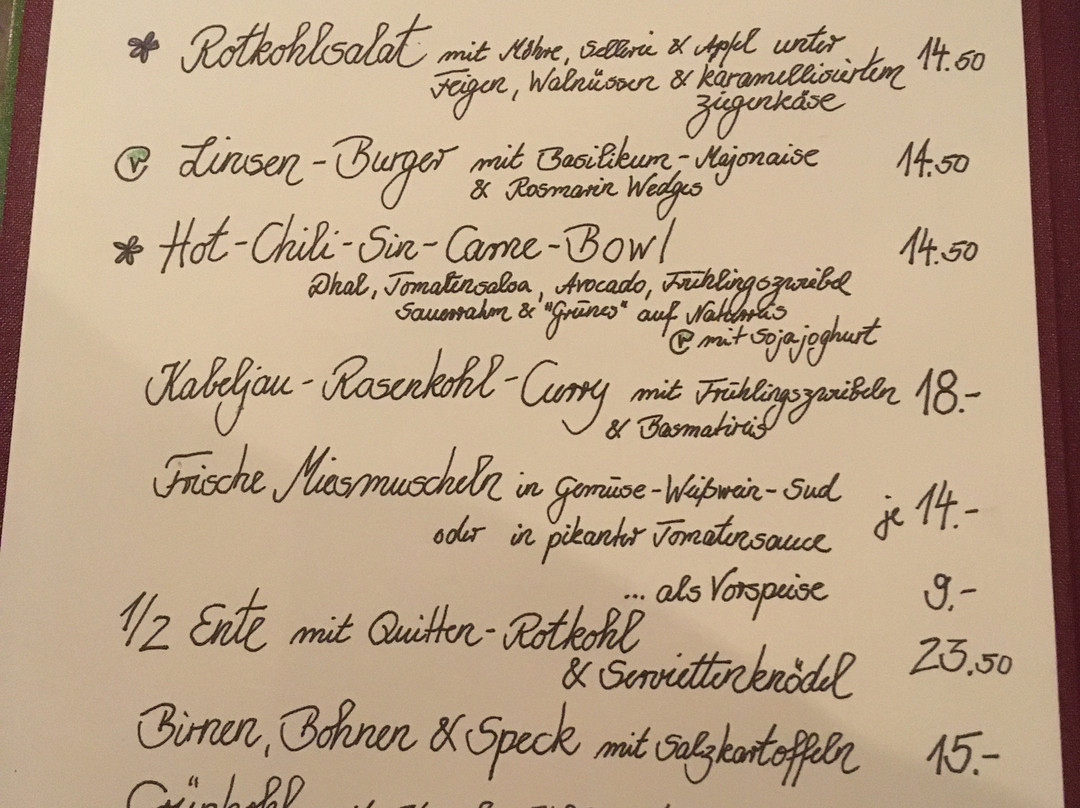 * Rotkohlsalat mit Möhre, Sellerie & Apfel unter 14.50
Feigen, Walnüssen & karamellisiertem
Ziegenkäse
V Linsen-Burger mit Basilikum-Majonaise 14.50
& Rosmarin Wedges
* Hot-Chili-Sin-Carne-Bowl 14.50
Dhal, Tomatensalsa, Avocado, Frühlingszwiebel
Sauerrahm & "Grünes" auf Naturreis
V mit Sojajoghurt
Kabeljau-Rosenkohl-Curry mit Frühlingszwiebeln 18.-
& Basmatireis
Frische Miesmuscheln in Gemüse-Weißwein-Sud je 14.-
oder in pikanter Tomatensauce
... als Vorspeise 9.-
1/2 Ente mit Quitten-Rotkohl 23.50
& Serviettenknödel
Birnen, Bohnen & Speck mit Salzkartoffeln 15.-
Grünkohl